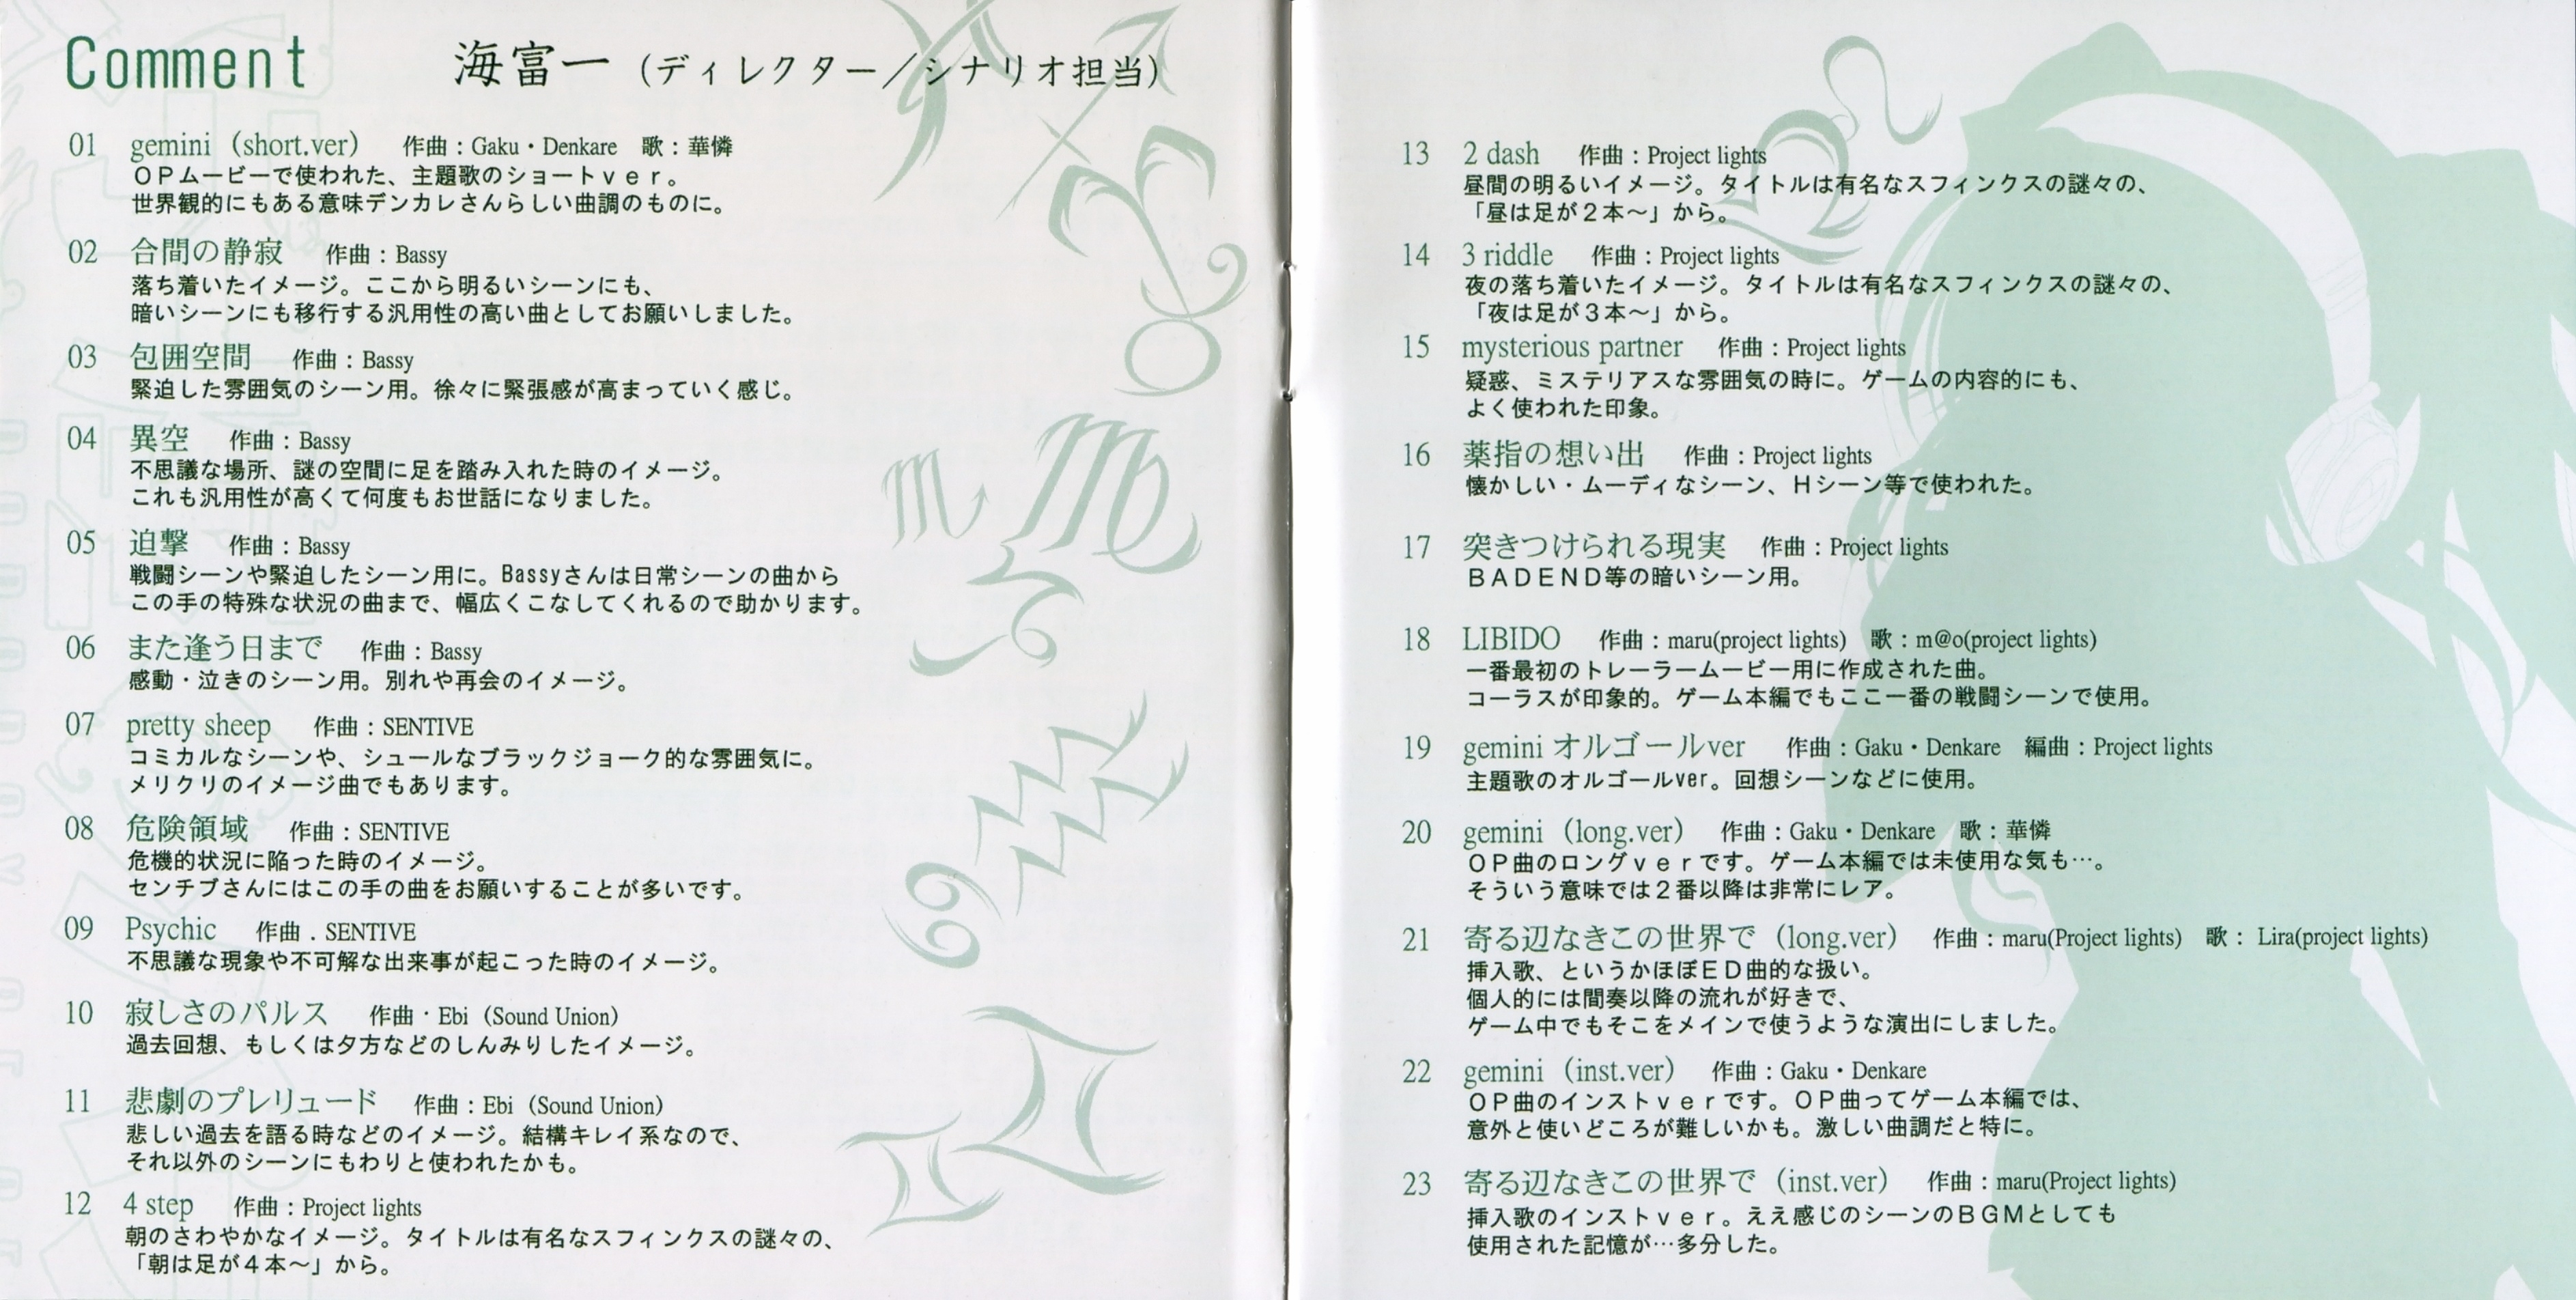 Comment　海富一（ディレクター／シナリオ担当）
01　gemini（short.ver）　作曲：Gaku・Denkare　歌：華憐
ＯＰムービーで使われた、主題歌のショートｖｅｒ。
世界観的にもある意味デンカレさんらしい曲調のものに。
02　合間の静寂　作曲：Bassy
落ち着いたイメージ。ここから明るいシーンにも、
暗いシーンにも移行する汎用性の高い曲としてお願いしました。
03　包囲空間　作曲：Bassy
緊迫した雰囲気のシーン用。徐々に緊張感が高まっていく感じ。
04　異空　作曲：Bassy
不思議な場所、謎の空間に足を踏み入れた時のイメージ。
これも汎用性が高くて何度もお世話になりました。
05　迫撃　作曲：Bassy
戦闘シーンや緊迫したシーン用に。Bassyさんは日常シーンの曲から
この手の特殊な状況の曲まで、幅広くこなしてくれるので助かります。
06　また逢う日まで　作曲：Bassy
感動・泣きのシーン用。別れや再会のイメージ。
07　pretty sheep　作曲：SENTIVE
コミカルなシーンや、シュールなブラックジョーク的な雰囲気に。
メリクリのイメージ曲でもあります。
08　危険領域　作曲：SENTIVE
危機的状況に陥った時のイメージ。
センチブさんにはこの手の曲をお願いすることが多いです。
09　Psychic　作曲．SENTIVE
不思議な現象や不可解な出来事が起こった時のイメージ。
10　寂しさのパルス　作曲・Ebi（Sound Union）
過去回想、もしくは夕方などのしんみりしたイメージ。
11　悲劇のプレリュード　作曲：Ebi（Sound Union）
悲しい過去を語る時などのイメージ。結構キレイ系なので、
それ以外のシーンにもわりと使われたかも。
12　4 step　作曲：Project lights
朝のさわやかなイメージ。タイトルは有名なスフィンクスの謎々の、
「朝は足が４本～」から。
13　2 dash　作曲：Project lights
昼間の明るいイメージ。タイトルは有名なスフィンクスの謎々の、
「昼は足が２本～」から。
14　3 riddle　作曲：Project lights
夜の落ち着いたイメージ。タイトルは有名なスフィンクスの謎々の、
「夜は足が３本～」から。
15　mysterious partner　作曲：Project lights
疑惑、ミステリアスな雰囲気の時に。ゲームの内容的にも、
よく使われた印象。
16　薬指の想い出　作曲：Project lights
懐かしい・ムーディなシーン、Ｈシーン等で使われた。
17　突きつけられる現実　作曲：Project lights
ＢＡＤＥＮＤ等の暗いシーン用。
18　LIBIDO　作曲：maru(project lights)　歌：m@o(project lights)
一番最初のトレーラームービー用に作成された曲。
コーラスが印象的。ゲーム本編でもここ一番の戦闘シーンで使用。
19　gemini オルゴールver　作曲：Gaku・Denkare　編曲：Project lights
主題歌のオルゴールver。回想シーンなどに使用。
20　gemini（long.ver）　作曲：Gaku・Denkare　歌：華憐
ＯＰ曲のロングｖｅｒです。ゲーム本編では未使用な気も…。
そういう意味では２番以降は非常にレア。
21　寄る辺なきこの世界で（long.ver）　作曲：maru(Project lights)　歌：Lira(project lights)
挿入歌、というかほぼＥＤ曲的な扱い。
個人的には間奏以降の流れが好きで、
ゲーム中でもそこをメインで使うような演出にしました。
22　gemini（inst.ver）　作曲：Gaku・Denkare
ＯＰ曲のインストｖｅｒです。ＯＰ曲ってゲーム本編では、
意外と使いどころが難しいかも。激しい曲調だと特に。
23　寄る辺なきこの世界で（inst.ver）　作曲：maru(Project lights)
挿入歌のインストｖｅｒ。ええ感じのシーンのＢＧＭとしても
使用された記憶が…多分した。